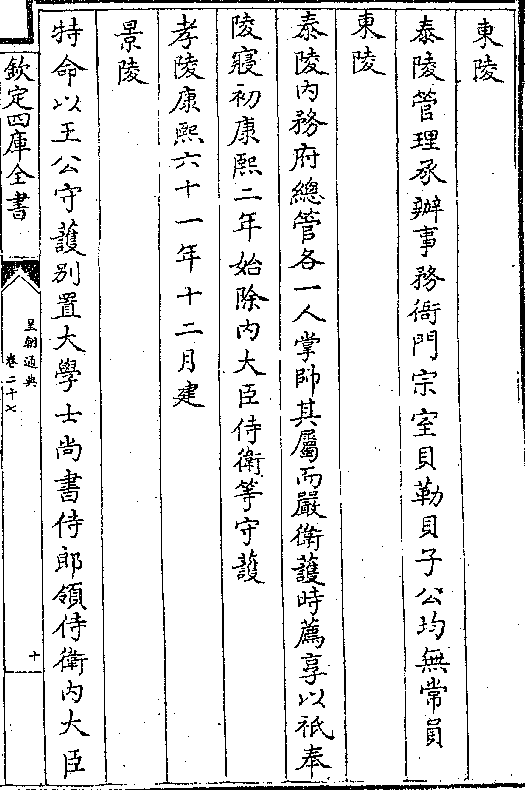 東陵
泰陵管理承辦事務衙門宗室貝勒貝子公均無常員
東陵
泰陵内務府總管各一人掌帥其屬而嚴衛護時薦享以祗奉
陵寢初康熙二年始除内大臣侍衛等守護
孝陵康熙六十一年十二月建
景陵
特命以王公守護别置大學士尚書侍郎領侍衛内大臣
欽定四庫全書
皇朝通典
卷二十七
十